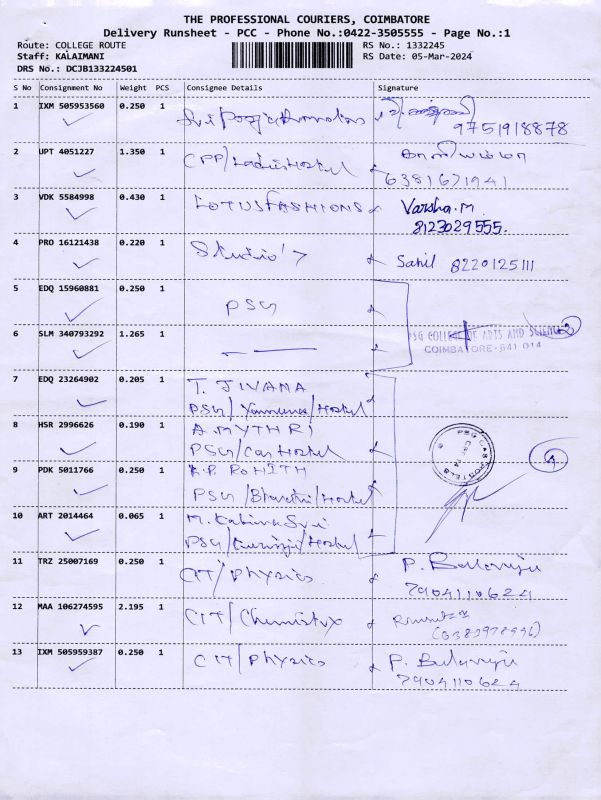 THE PROFESSIONAL COURIERS, COIMBATORE
Delivery Runsheet - PCC - Phone No.:0422-3505555 - Page No.:1
Route: COLLEGE ROUTE RS No.: 1332245
Staff: KALAIMANI RS Date: 05-Mar-2024
DRS No.: DCJB133224501
S No Consignment No Weight PCS Consignee Details Signature
1 IXM 505953560 0.250 1
9751918878
2 UPT 4051227 1.350 1 CPP/Ladies Hostel
6381671941
3 VDK 5584998 0.430 1 LOTUS FASHIONS Varsha.M.
8123029555.
4 PRO 16121438 0.220 1 Studio 7 Sahil 8220125111
5 EDQ 15960881 0.250 1 PSG
6 SLM 340793292 1.265 1 PSG COLLEGE OF ARTS AND SCIENCE
COIMBATORE-641 014
7 EDQ 23264902 0.205 1 T. JIVANA
PSG/Yamuna/Hostel
8 HSR 2996626 0.190 1 AMYTHRI
PSG/Cas Hostel
9 PDK 5011766 0.250 1 ROHITH
PSG/Bharathi/Hostel
10 ART 2014464 0.065 1 M.
PSG/Kurinji/Hostel
11 TRZ 25007169 0.250 1 CIT/Physics P.
7904110624
12 MAA 106274595 2.195 1 CIT/Chemistry
13 IXM 505959387 0.250 1 CIT/Physics P.
7904110624